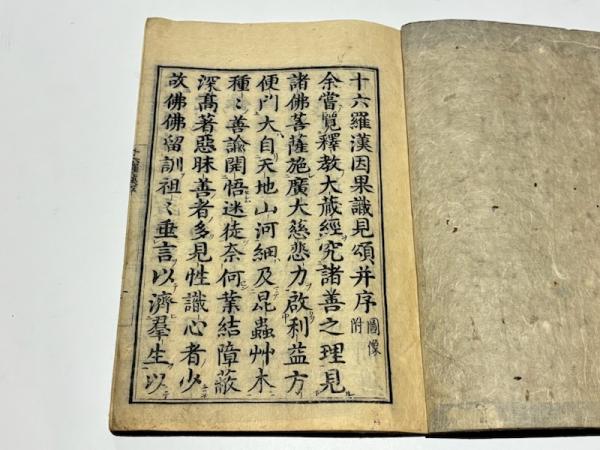 十六羅漢因果識見頌并序 圖像附
余嘗覧釋教大蔵經究諸善之理見
諸佛菩薩施廣大慈悲力啟利益方
便門大自天地山河細及昆蟲艸木
種〻善諭開悟迷徒奈何業結障蔽
深髙著惡昧善者多見性識心者少
故佛佛留訓祖〻垂言以濟羣生以